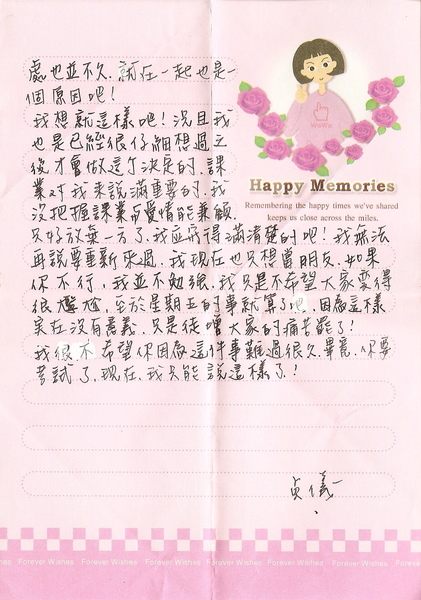 處也並不久.就在一起也是一
個原因吧!
我想就這樣吧!況且我
也是已經很仔細想過之
後才會做這個決定的.課
業對我來說滿重要的.我
沒把握課業和愛情能兼顧.
只好放棄一方了.我應寫得滿清楚的吧!我無法
再說要重新來過.我現在也只想當朋友.如果
你不行,我並不勉強.我只是不希望大家變得
很尷尬.至於星期五的事就算了吧.因為這樣
實在沒有意義.只是徒增大家的痛苦罷了!
我很不希望你因為這件事難過很久.畢竟.你要
考試了.現在.我只能說這樣了!
貞儀
WuWu
Happy Memories
Remembering the happy times we've shared
keeps us close across the miles.
Forever Wishes Forever Wishes Forever Wishes Forever Wishes Forever Wishes